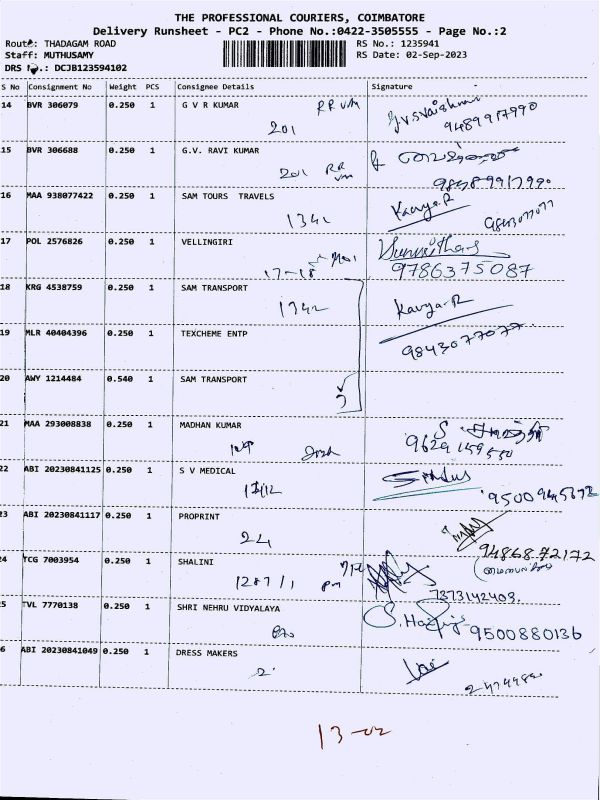 THE PROFESSIONAL COURIERS, COIMBATORE
Delivery Runsheet - PC2 - Phone No.:0422-3505555 - Page No.:2
Route: THADAGAM ROAD RS No.: 1235941
Staff: MUTHUSAMY RS Date: 02-Sep-2023
DRS No.: DCJB123594102
S No Consignment No Weight PCS Consignee Details Signature
14 BVR 306079 0.250 1 G V R KUMAR RR VM
201 9489917990
15 BVR 306688 0.250 1 G.V. RAVI KUMAR
201 RR VM
16 MAA 938077422 0.250 1 SAM TOURS TRAVELS Kavya.R
1342
17 POL 2576826 0.250 1 VELLINGIRI
17-18 9786375087
18 KRG 4538759 0.250 1 SAM TRANSPORT
1342 Kavya-R
19 MLR 40404396 0.250 1 TEXCHEME ENTP 9843077077
20 AWY 1214484 0.540 1 SAM TRANSPORT
21 MAA 293008838 0.250 1 MADHAN KUMAR
9629 159550
22 ABI 20230841125 0.250 1 S V MEDICAL
1212 9500945672
23 ABI 20230841117 0.250 1 PROPRINT
24 9486872172
24 TCG 7003954 0.250 1 SHALINI
1287/1 7373142409.
25 TVL 7770138 0.250 1 SHRI NEHRU VIDYALAYA
9500880136
6 ABI 20230841049 0.250 1 DRESS MAKERS
2
13-02